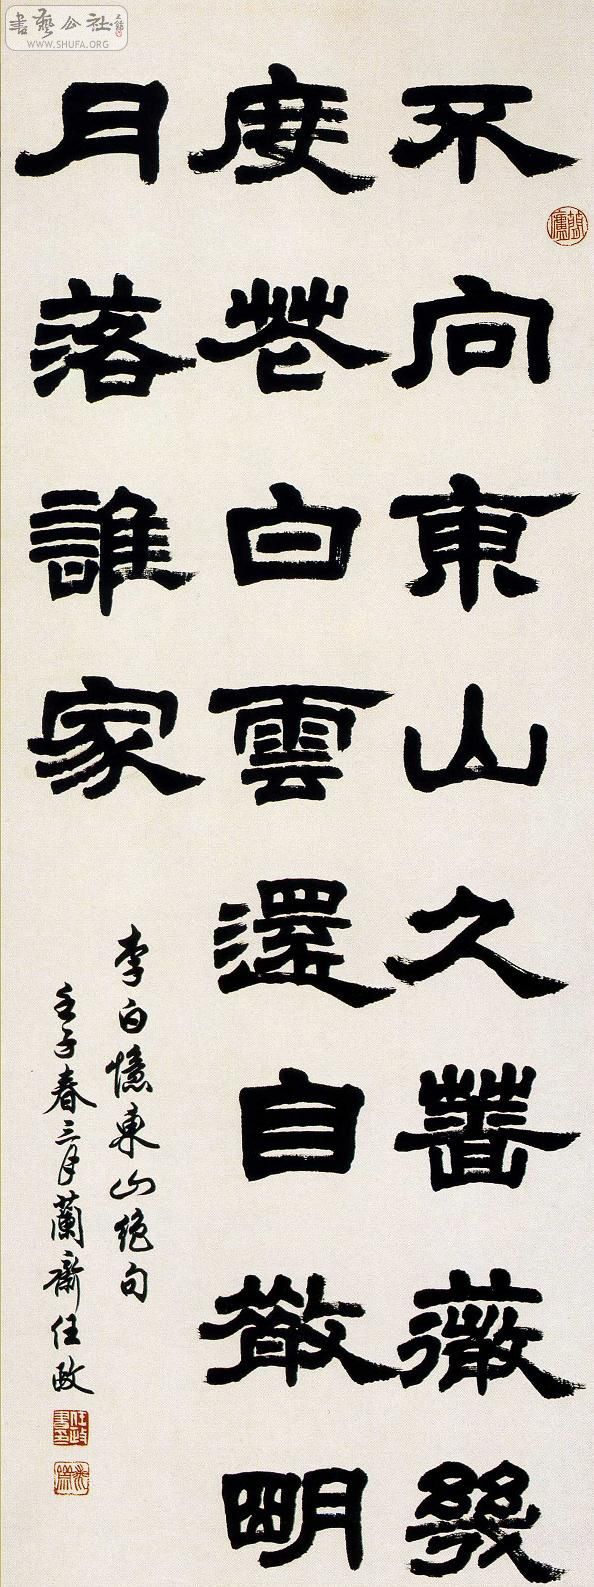 書藝公社
WWW.SHUFA.ORG
不向東山久蔷薇幾
度花白雲還自散明
月落誰家
李白憶東山絕句
壬子春三月蘭齋任政
任政書印